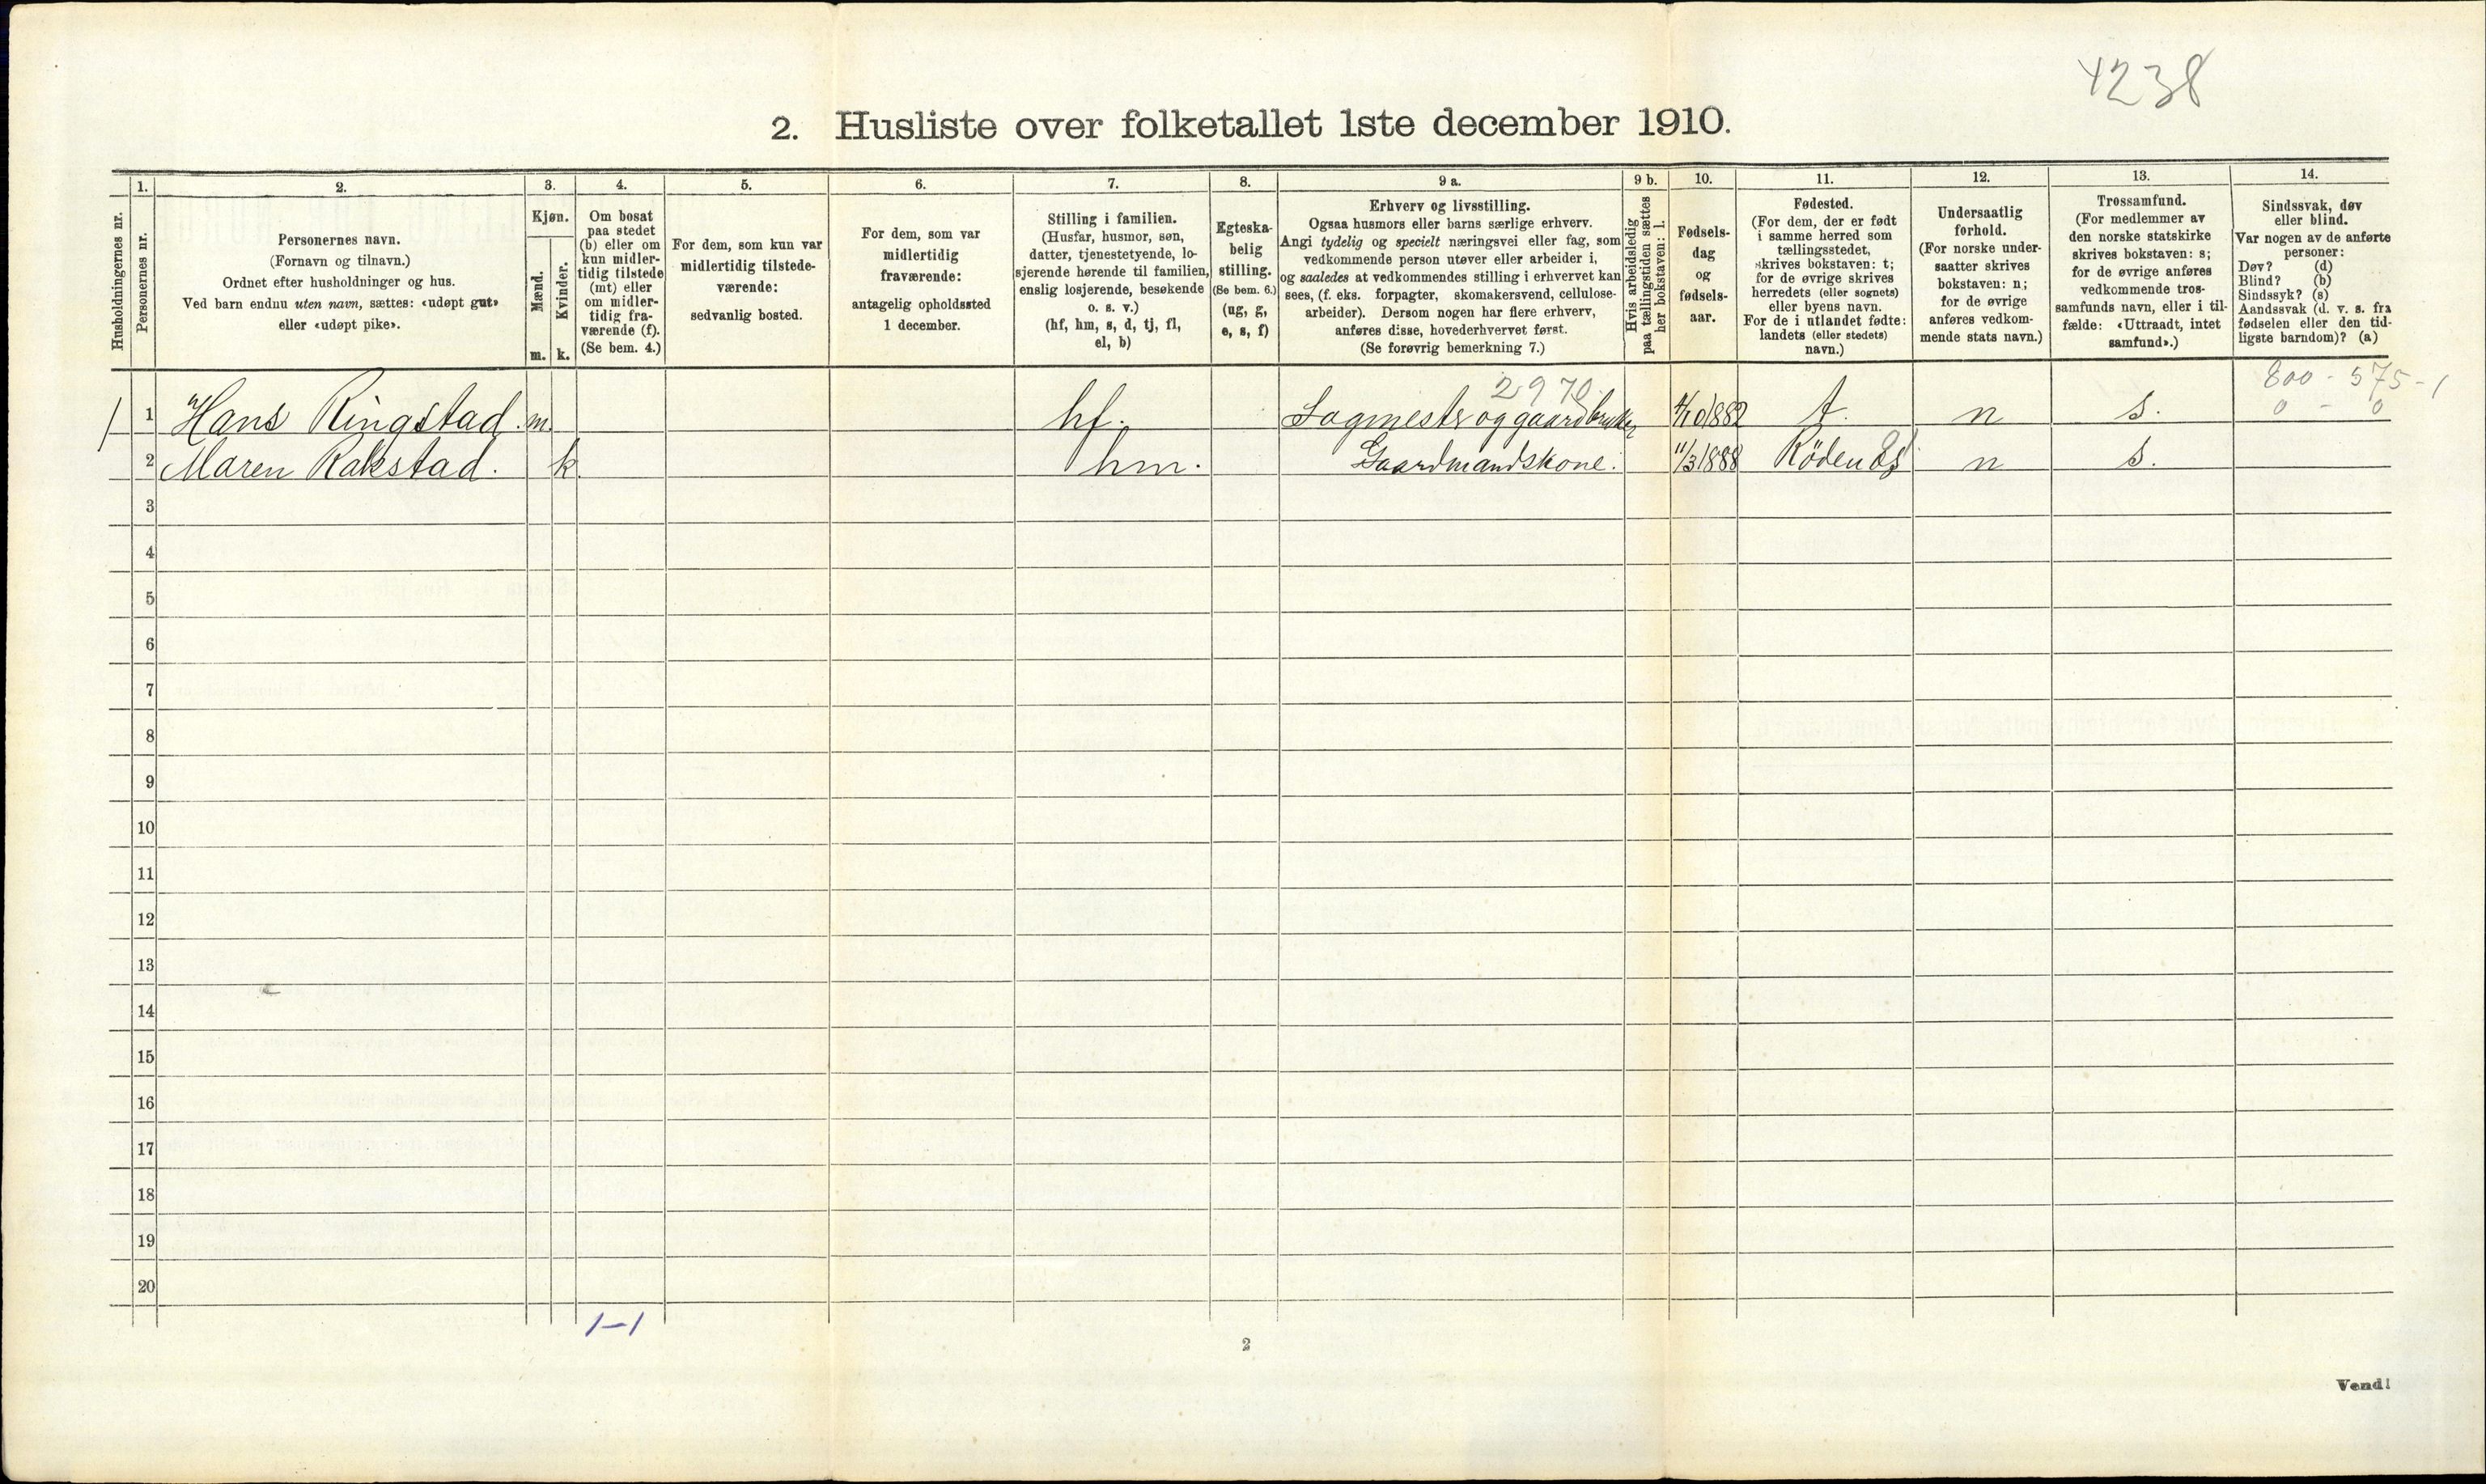 4238
2. Husliste over folketallet 1ste december 1910.
Husholdningernes nr.
1.
Personernes nr.
2.
Personernes navn.
(Fornavn og tilnavn.)
Ordnet efter husholdninger og hus.
Ved barn endnu uten navn, sættes: «udøpt gut»
eller «udøpt pike».
3.
Kjøn.
Mænd.
Kvinder.
m. k.
4.
Om bosat
paa stedet
(b) eller om
kun midler-
tidig tilstede
(mt) eller
om midler-
tidig fra-
værende (f).
(Se bem. 4.)
5.
For dem, som kun var
midlertidig tilstede-
værende:
sedvanlig bosted.
6.
For dem, som var
midlertidig
fraværende:
antagelig opholdssted
1 december.
7.
Stilling i familien.
(Husfar, husmor, søn,
datter, tjenestetyende, lo-
sjerende hørende til familien,
enslig losjerende, besøkende
o. s. v.)
(hf, hm, s, d, tj, fl,
el, b)
8.
Egteska-
belig
stilling.
(Se bem. 6.)
(ug, g,
e, s, f)
9 a.
Erhverv og livsstilling.
Ogsaa husmors eller barns særlige erhverv.
Angi tydelig og specielt næringsvei eller fag, som
vedkommende person utøver eller arbeider i,
og saaledes at vedkommendes stilling i erhvervet kan
sees, (f. eks. forpagter, skomakersvend, cellulose-
arbeider). Dersom nogen har flere erhverv,
anføres disse, hovederhvervet først.
(Se forøvrig bemerkning 7.)
9 b.
Hvis arbeidsledig
paa tællingstiden sættes
her bokstaven: l.
10.
Fødsels-
dag
og
fødsels-
aar.
11.
Fødested.
(For dem, der er født
i samme herred som
tællingsstedet,
skrives bokstaven: t;
for de øvrige skrives
herredets (eller sognets)
eller byens navn.
For de i utlandet fødte:
landets (eller stedets)
navn.)
12.
Undersaatlig
forhold.
(For norske under-
saatter skrives
bokstaven: n;
for de øvrige
anføres vedkom-
mende stats navn.)
13.
Trossamfund.
(For medlemmer av
den norske statskirke
skrives bokstaven: s;
for de øvrige anføres
vedkommende tros-
samfunds navn, eller i til-
fælde: «Uttraadt, intet
samfund».)
14.
Sindssvak, døv
eller blind.
Var nogen av de anførte
personer:
Døv? (d)
Blind? (b)
Sindssyk? (s)
Aandssvak (d. v. s. fra
fødselen eller den tid-
ligste barndom)? (a)
2970 800 - 575 - 1
0 - 0
1 Hans Ringstad. m. hf. Sagmester og gaardbruker 4/10 1882 t. n s.
2 Maren Rakstad. k. hm. Gaardmandskone. 11/3 1888 Rödenes n s.
3
4
5
6
7
8
9
10
11
12
13
14
15
16
17
18
19
20
1-1
2
Vend!